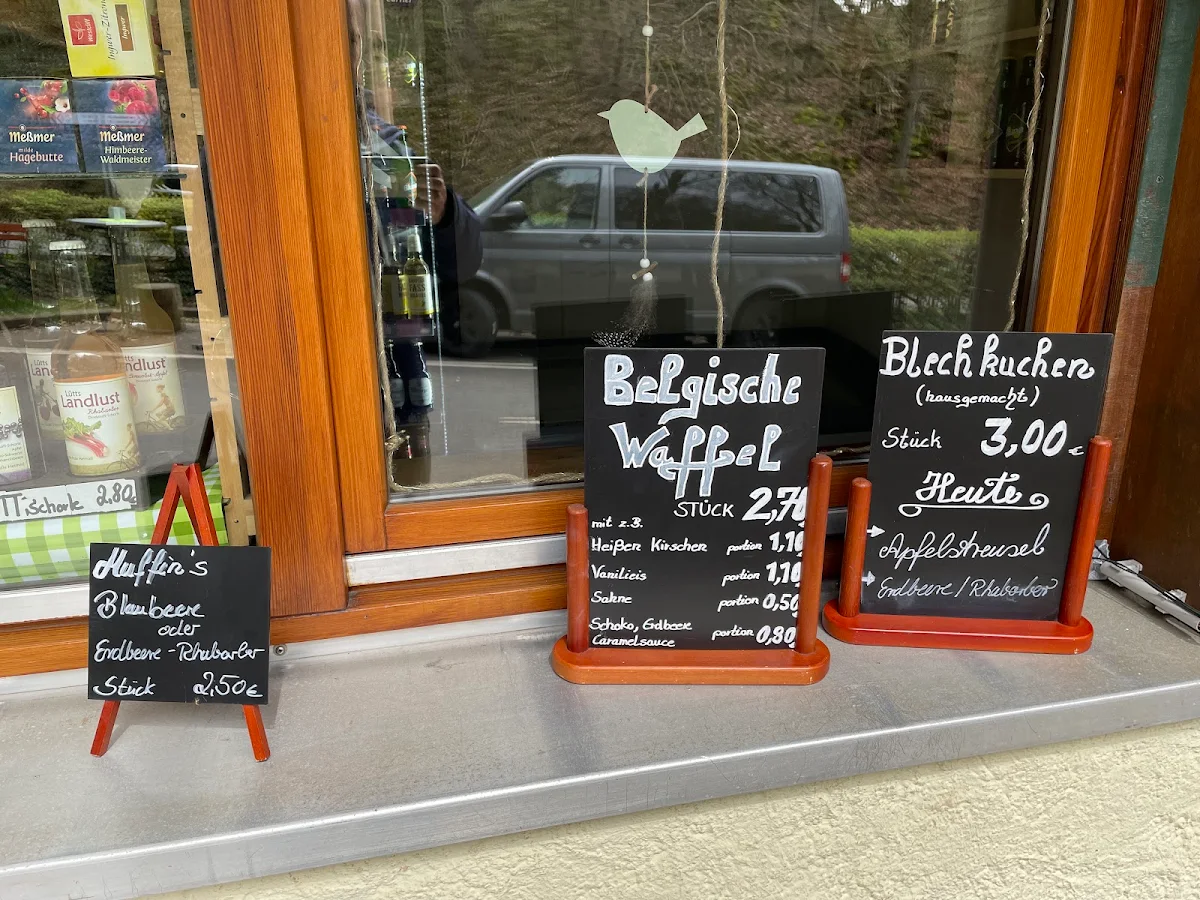 Ingwer-Zitrone
Meßmer
milde
Hagebutte
Meßmer
Himbeere-
Waldmeister
Lütts
Landlust
Rhabarber
Lütts
Landlust
Tischorle 2,80
Muffin's
Blaubeere
oder
Erdbeere-Rhabarber
Stück 2,50€
Belgische
Waffel
STÜCK 2,70
mit z.B.
Heißen Kirschen portion 1,10
Vanilleis portion 1,10
Sahne portion 0,50
Schoko, Erdbeere
Caramelsauce portion 0,80
Blechkuchen
(hausgemacht)
Stück 3,00€
Heute
→ Apfelstreusel
→ Erdbeere/Rhabarber